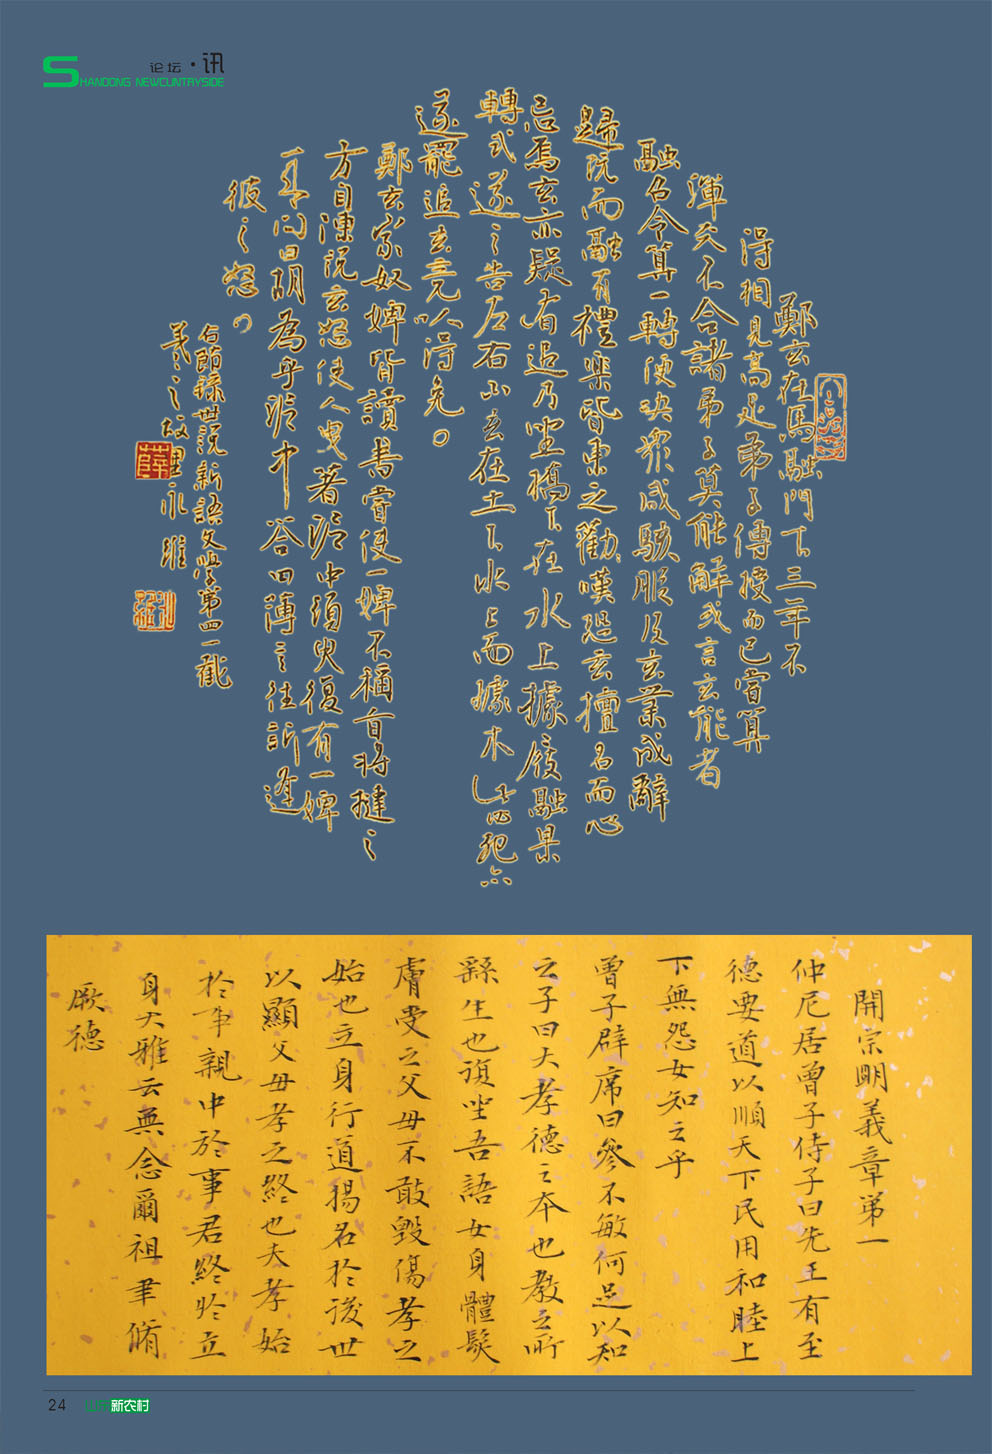 论坛·讯
SHANDONG NEWCUNTRYSIDE
鄭玄在馬融門下三年不
得相見高足弟子傳授而已嘗算
渾天不合諸弟子莫能解或言玄能者
融召令算一轉便決眾咸駭服及玄業成辭
歸既而融有禮樂皆東之嘆恐玄擅名而心
忌焉玄亦疑有追乃坐橋下在水上據屐融果
轉式逐之告左右曰玄在土下水上而據木此必死矣
遂罷追玄竟以得免
鄭玄家奴婢皆讀書嘗使一婢不稱旨將撻之
方自陳說玄怒使人曳著泥中須臾復有一婢
來問曰胡為乎泥中答曰薄言往訴逢
彼之怒
右節錄世說新語文學第四一截
羲之故里永
薛
開宗明義章弟一
仲尼居曾子侍子曰先王有至
德要道以順天下民用和睦上
下無怨女知之乎
曾子辟席曰參不敏何足以知
之子曰夫孝德之本也教之所
繇生也復坐吾語女身體髮
膚受之父母不敢毀傷孝之
始也立身行道揚名於後世
以顯父母孝之終也夫孝始
於事親中於事君終於立
身大雅云無念爾祖聿脩
厥德
24
山东新农村